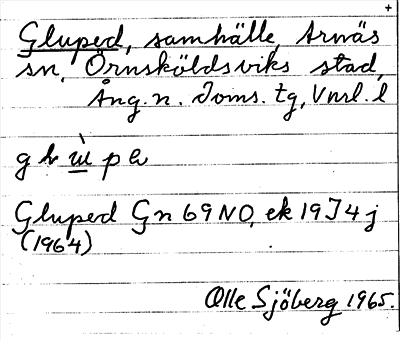 Gluped, samhälle, Arnäs
sn, Örnsköldsviks stad,
Ång. n. Doms. tg, Vnrl. l
Gluped Gn 69 NO, ek 19J4j
(1964)
Olle Sjöberg 1965.